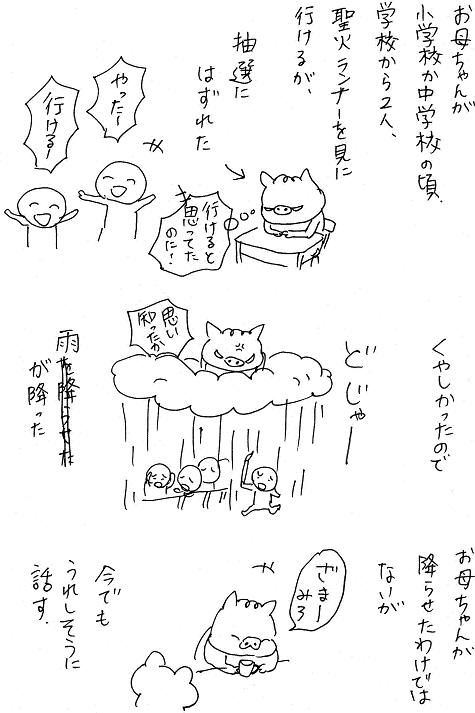 お母ちゃんが
小学校か中学校の頃、
学校から2人、
聖火ランナーを見に
行けるが、
抽選に
はずれた
行けると
思ってた
のに！
やったー
行ける！
くやしかったので
どじゃー
思い
知ったか
雨を降らせた
が降った
お母ちゃんが
降らせたわけでは
ないが
ざまー
みろ
今でも
うれしそうに
話す.